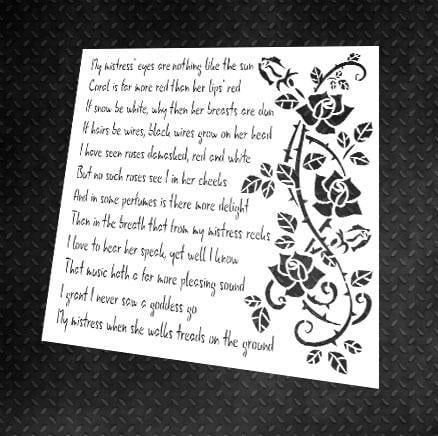 My mistress' eyes are nothing like the sun
Coral is far more red than her lips' red
If snow be white, why then her breasts are dun
If hairs be wires, black wires grow on her head
I have seen roses damasked, red and white
But no such roses see I in her cheeks
And in some perfumes is there more delight
Than in the breath that from my mistress reeks
I love to hear her speak, yet well I know
That music hath a far more pleasing sound
I grant I never saw a goddess go
My mistress when she walks treads on the ground